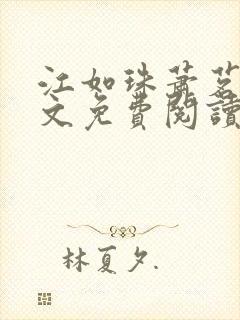 江如珠蕭茗
文免費閱讀
林夏夕.